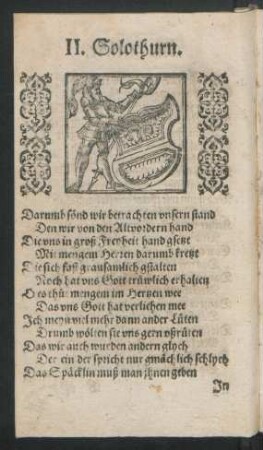 II. Solothurn.
Darumb sönd wir betrachten vnsern stand
Den wir von den Altvordern hand
Die vns in groß Freyheit hand gsetzt
Mit mengem Herren darumb kretzt
Die sich fast grausamlich gstalten
Noch hat vns Gott trüwlich erhalten
Des thut mengem im Hertzen wee
Das vns Gott hat verlichen mee
Ich meyn viel mehr dann ander Lüten
Drumb wölten sie vns gern vßrüten
Das wir auch wurden andern glych
Der ein der spricht nur gmächlich schlych
Das Späcklin muß man jhnen geben
In